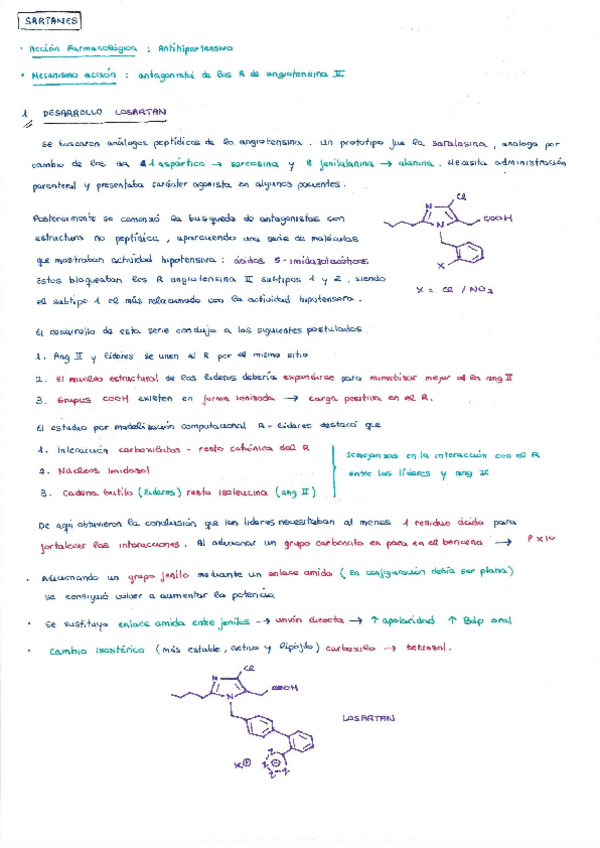 SARTANES
· Acción Farmacológica : Antihipertensivo
· Mecanismo acción : antagonista de los R de angiotensina II
1 DESARROLLO LOSARTAN
Se buscaron análogos peptídicos de la angiotensina. Un prototipo fue la saralasina, análogo por
cambio de los aa 1 aspártico → sarcosina y 8 fenilalanina → alanina. Necesita administración
parenteral y presentaba carácter agonista en algunos pacientes.
Posteriormente se comenzó la búsqueda de antagonistas con
estructura no peptídica, apareciendo una serie de moléculas
que mostraban actividad hipotensora: ácidos 5-imidazolacéticos
Estos bloqueaban los R angiotensina II subtipos 1 y 2, siendo
el subtipo 1 el más relacionado con la actividad hipotensora.
Cl
N
N
COOH
X
X = Cl / NO2
El desarrollo de esta serie condujo a los siguientes postulados
1. Ang II y líderes se unen al R por el mismo sitio
2. El núcleo estructural de los líderes debería expandirse para mimetizar mejor al la ang II
3. Grupos COOH existen en forma ionizada → carga positiva en el R.
El estudio por modelización computacional R - líderes destacó que
1. Interacción carboxilatos - resto catiónico del R
2. Núcleos imidazol
3. Cadena butilo (líderes) resto isoleucina (ang II)
semejanzas en la interacción con el R
entre los líderes y ang II
De aquí obtuvieron la conclusión que los líderes necesitaban al menos 1 residuo ácido para
fortalecer las interacciones. Al adicionar un grupo carboxilo en para en el benceno → P x10
· Adicionando un grupo fenilo mediante un enlace amida (su configuración debía ser plana)
se consiguió volver a aumentar la potencia
· Se sustituyó enlace amida entre fenilos → unión directa → ↑ apolaridad ↑ Bdp oral
· Cambio isostérico (más estable, activo y lipófilo) carboxilo → tetrazol.
Cl
N
N
COOH
LOSARTAN
K⊕
N
N
N
N